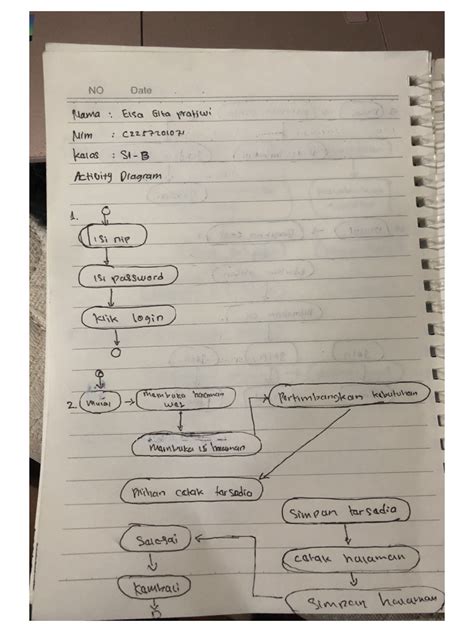 NO Date
Nama : Elsa Gita pratiwi
Nim : C2257201071
kelas : SI-B
Activity Diagram
1.
isi nip
isi password
klik login
2. mulai
membuka halaman web
Pertimbangkan kebutuhan
membuka isi halaman
pilihan cetak tersedia
Simpan tersedia
Selesai
cetak halaman
Kembali
Simpan halaman